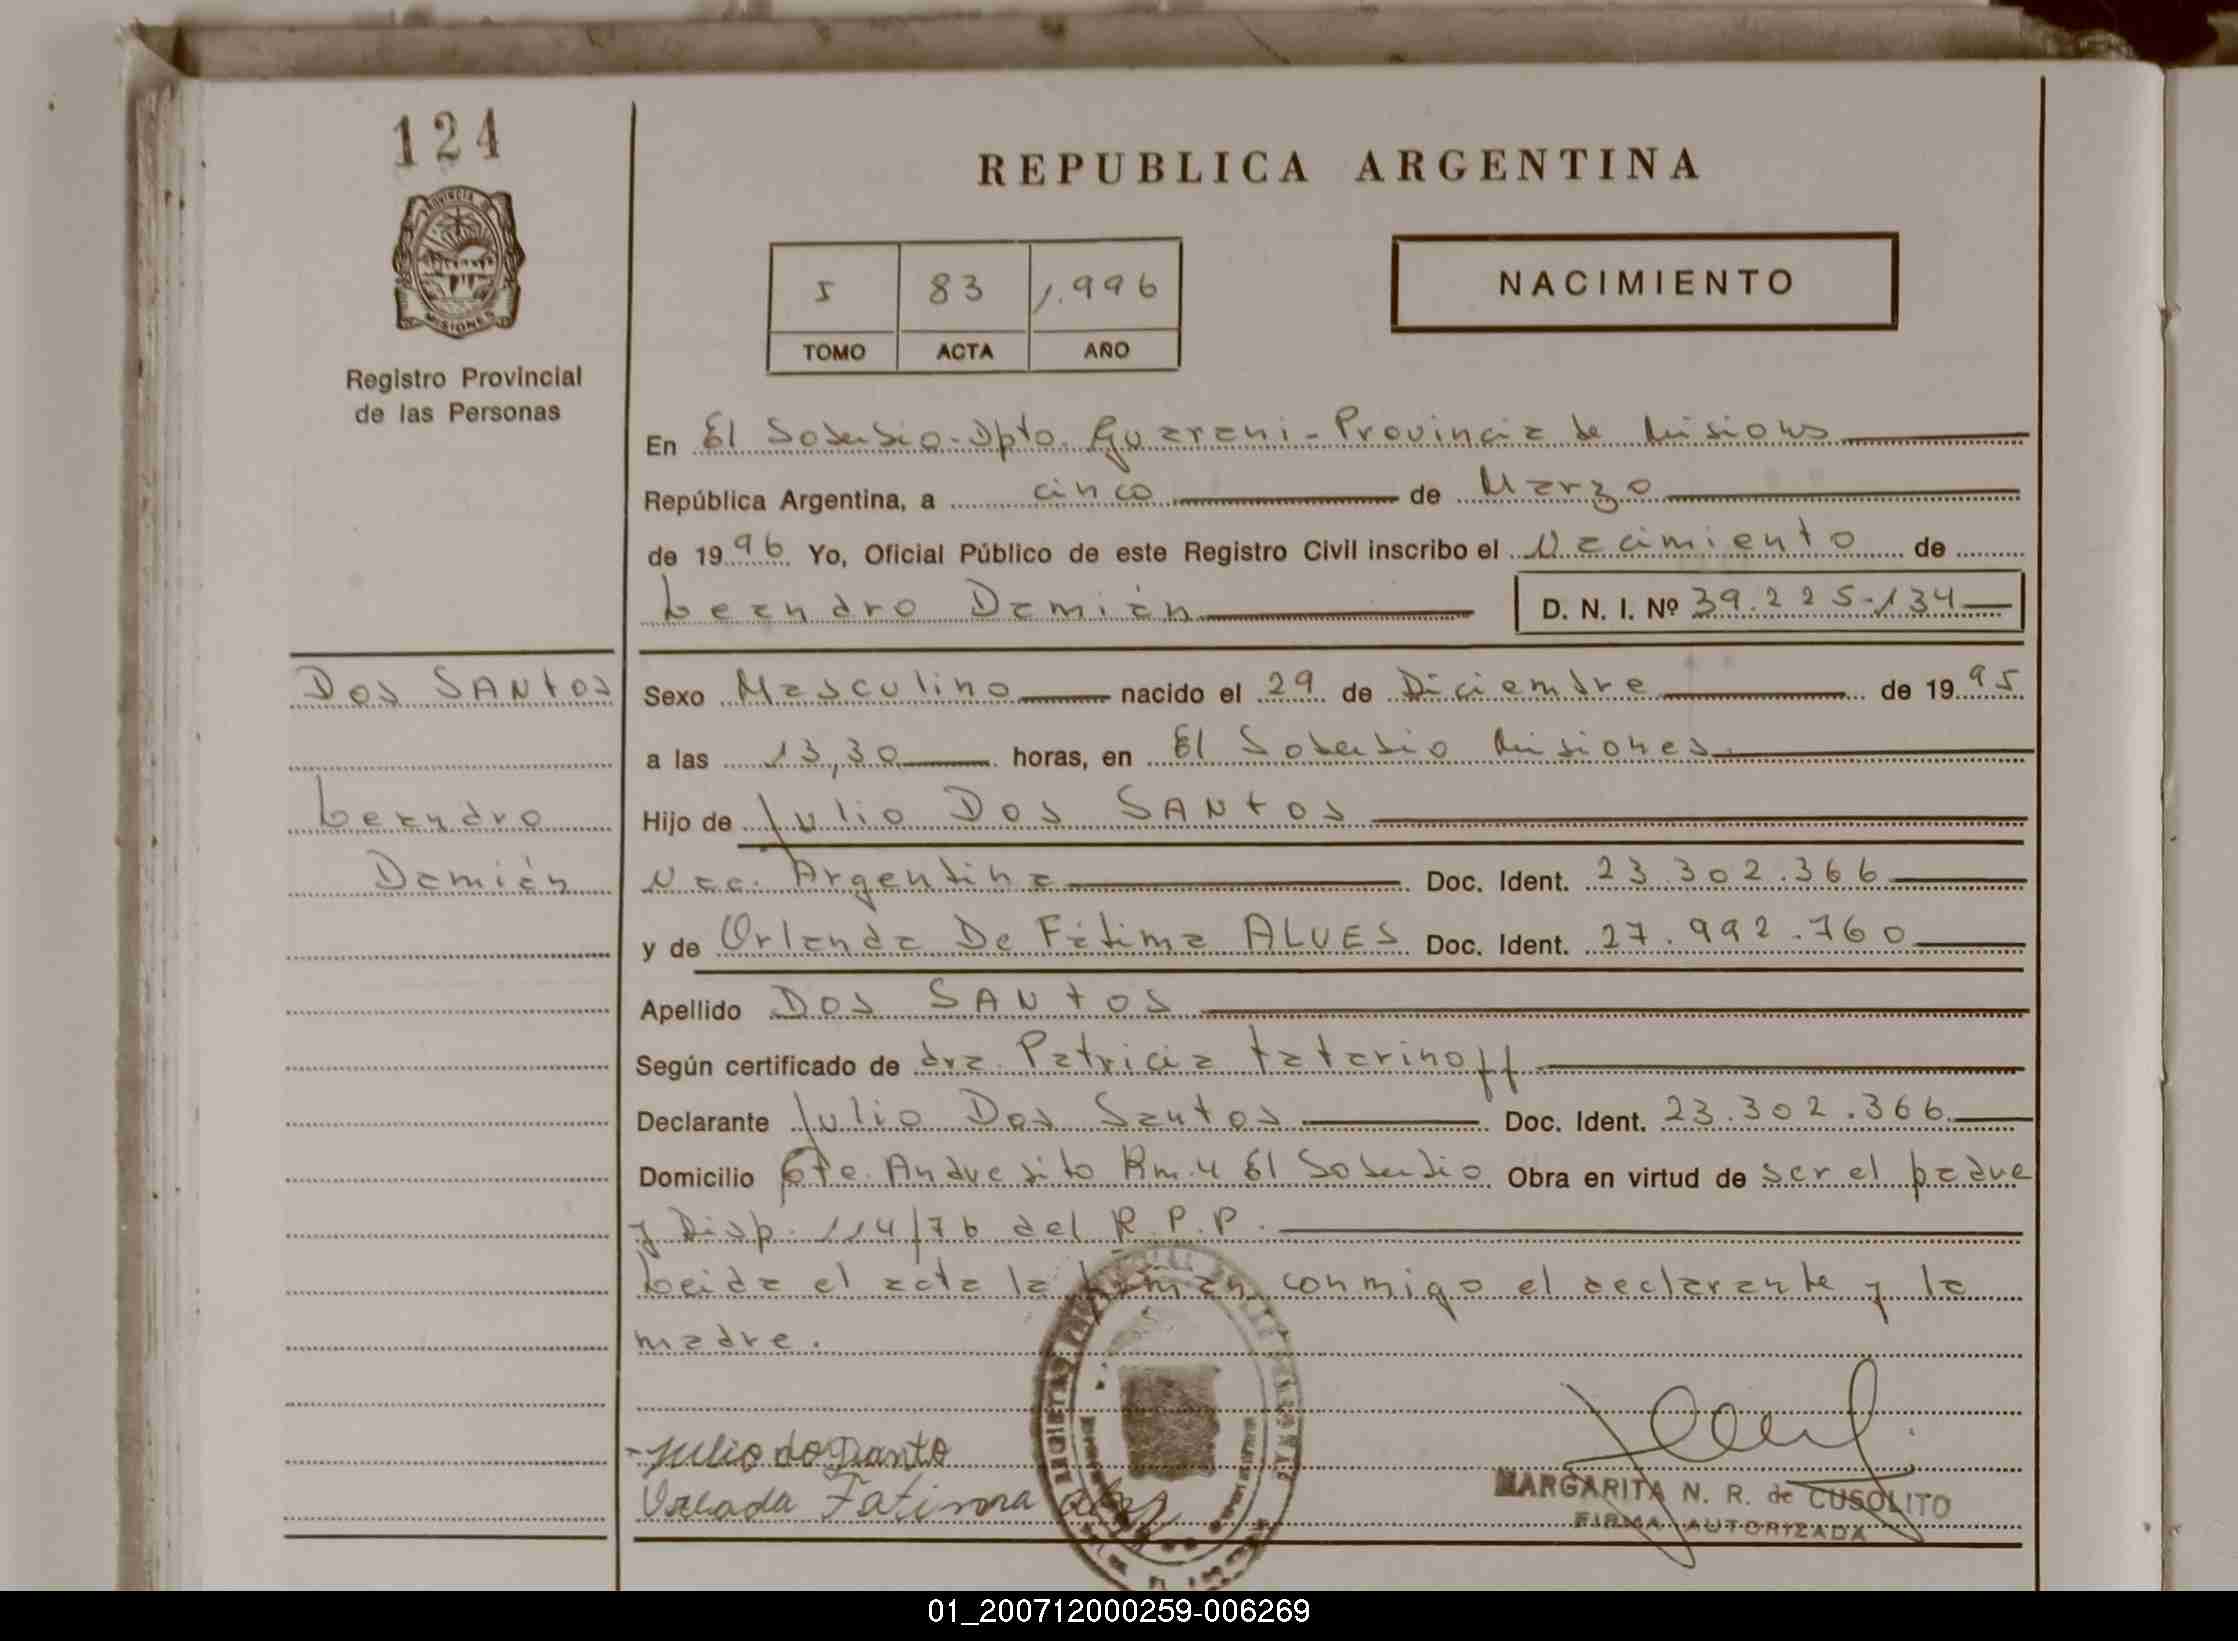 124
PROVINCIA DE
MISIONES
Registro Provincial
de las Personas
REPUBLICA ARGENTINA
5 83 1.996
TOMO ACTA AÑO
NACIMIENTO
En El Soberbio - Dpto. Guarani - Provincia de Misiones
República Argentina, a cinco de Marzo
de 1996 Yo, Oficial Público de este Registro Civil inscribo el Nacimiento de
Leandro Damián D. N. I. Nº 39.225.134
Dos SANtos
Leandro
Damián
Sexo Masculino nacido el 29 de Diciembre de 1995
a las 13,30 horas, en El Soberbio Misiones.
Hijo de Julio Dos SANtos
Nac. Argentina Doc. Ident. 23.302.366
y de Orlanda De Fátima ALVES Doc. Ident. 27.992.760
Apellido Dos SANtos
Según certificado de dra. Patricia tatarinoff
Declarante Julio Dos Santos Doc. Ident. 23.302.366
Domicilio Cte. Andresito Km. 4 El Soberbio Obra en virtud de ser el padre
y Disp. 114/76 del R.P.P.
Leida el acta la firman conmigo el declarante y la
madre.
Julio do Santo
Orlada Fatima
MARGARITA N. R. de CUSOLITO
FIRMA AUTORIZADA
01_200712000259-006269